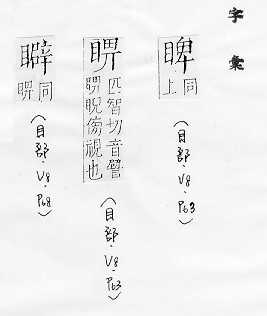 字彙
睥
同
上
(目部·V8·P63)
匹智切音譬
睨傍視也
(目部·V8·P63)
同
(目部·V8·P68)